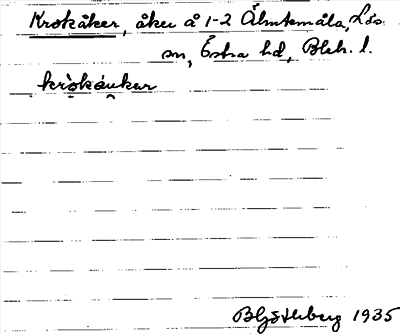 Krokåker, åker å 1-2 Älmtemåla, Lös
sn, Östra hd, Blek. l.
kròkáukar
B Göterberg 1935